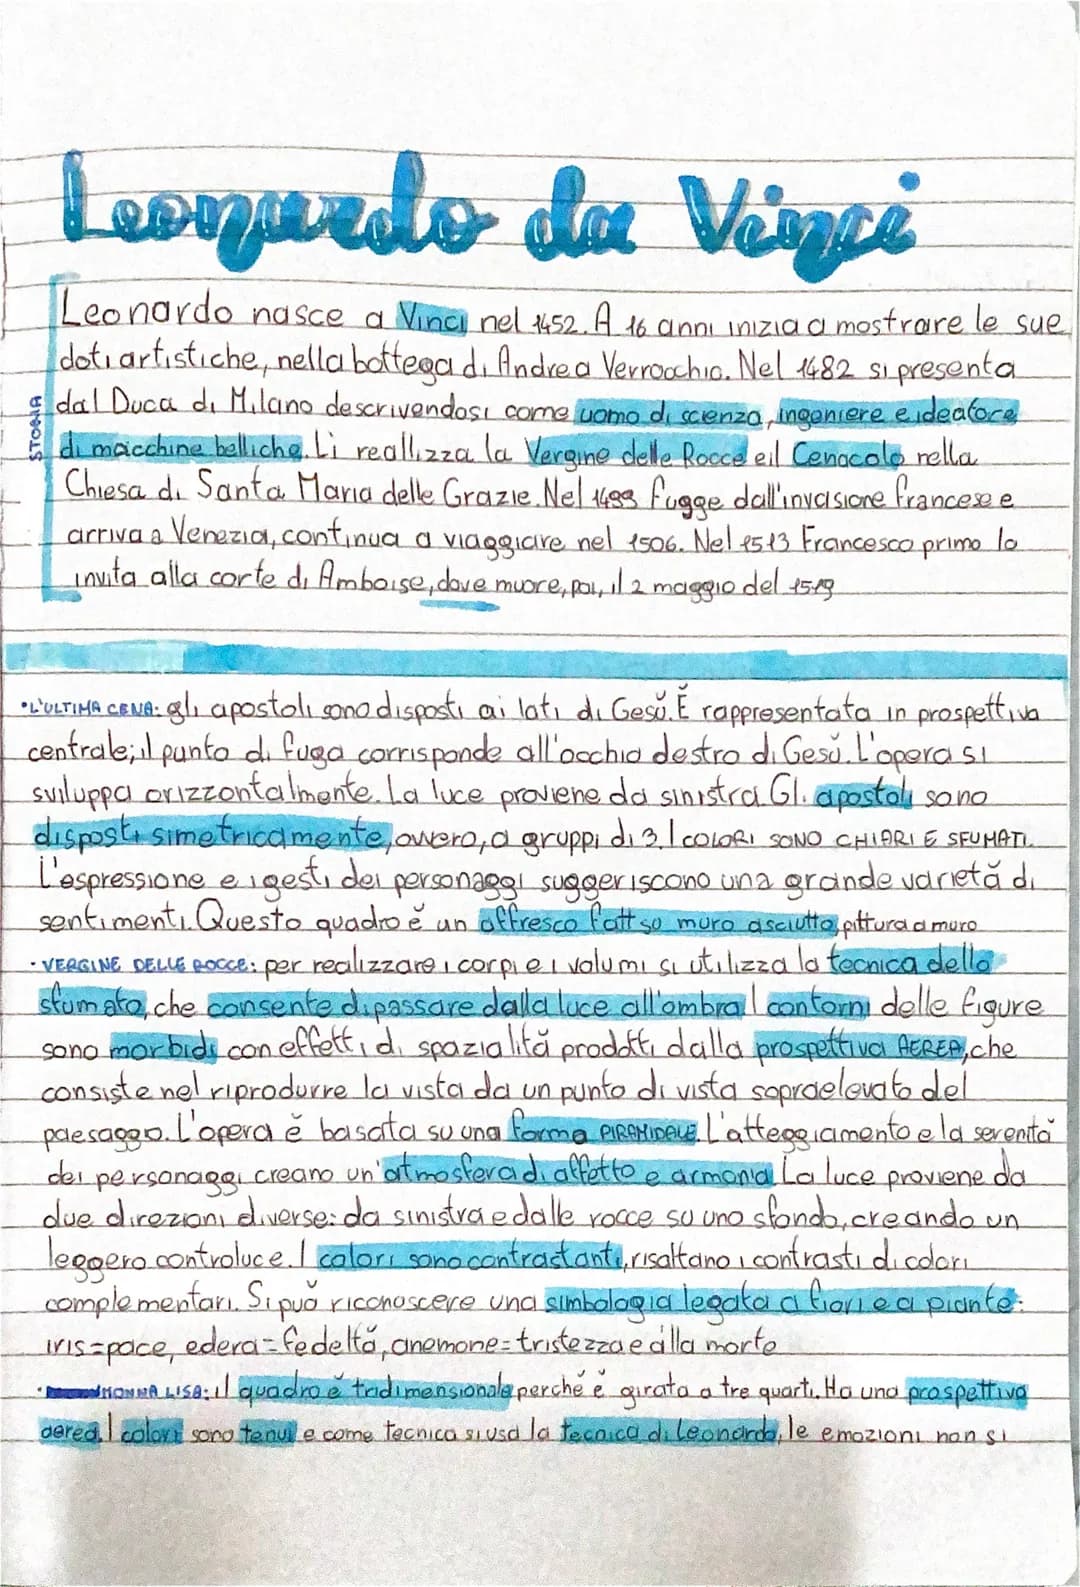 Leonardo da Vinci
Leonardo nasce a Vinci nel 1452. A 16 anni inizia a mostrare le sue
doti artistiche, nella bottega di Andrea Verrocchio. Nel 1482 si presenta
STORIA
dal Duca di Milano descrivendosi come uomo di scienza, ingeniere e ideatore
di macchine belliche. Li reallizza la Vergine delle Rocce e il Cenacolo nella
Chiesa di Santa Maria delle Grazie. Nel 1499 fugge dall'invasione francese e
arriva a Venezia, continua a viaggiare nel 1506. Nel 1513 Francesco primo lo
invita alla corte di Amboise, dove muore, poi, il 2 maggio del 1519
•L'ULTIMA CENA: gli apostoli sono disposti ai lati di Gesù. È rappresentata in prospettiva
centrale; il punto di fuga corrisponde all'occhio destro di Gesù. L'opera si
sviluppa orizzontalmente. La luce proviene da sinistra Gli apostoli sono
disposti simetricamente, ovvero, a gruppi di 3. I COLORI SONO CHIARI E SFUMATI.
L'espressione e i gesti dei personaggi suggeriscono una grande varietà di
sentimenti. Questo quadro è un affresco fatt su muro asciutto, pittura a muro
• VERGINE DELLE ROCCE: per realizzare i corpi e i volumi si utilizza la tecnica dello
sfumato, che consente di passare dalla luce all'ombra I contorni delle figure
sono morbidi con effetti di spazialità prodotti dalla prospettiva AEREA, che
consiste nel riprodurre la vista da un punto di vista sopraelevato del
paesaggio. L'opera è basata su una forma PIRAMIDALE. L'atteggiamento e la serenità
dei personaggi creano un'atmosfera di affetto e armonia. La luce proviene da
due direzioni diverse: da sinistra e dalle rocce su uno sfondo, creando un
leggero controluce. I colori sono contrastanti, risaltano i contrasti di colori
complementari. Si può riconoscere una simbologia legata a fiori e a piante:
iris=pace, edera=fedeltà, anemone=tristezza e alla morte
• MONNA LISA: il quadro è tridimensionale perché è girata a tre quarti. Ha una prospettiva
aerea. I colori sono tenui e come tecnica si usa la tecnica di Leonardo, le emozioni non si